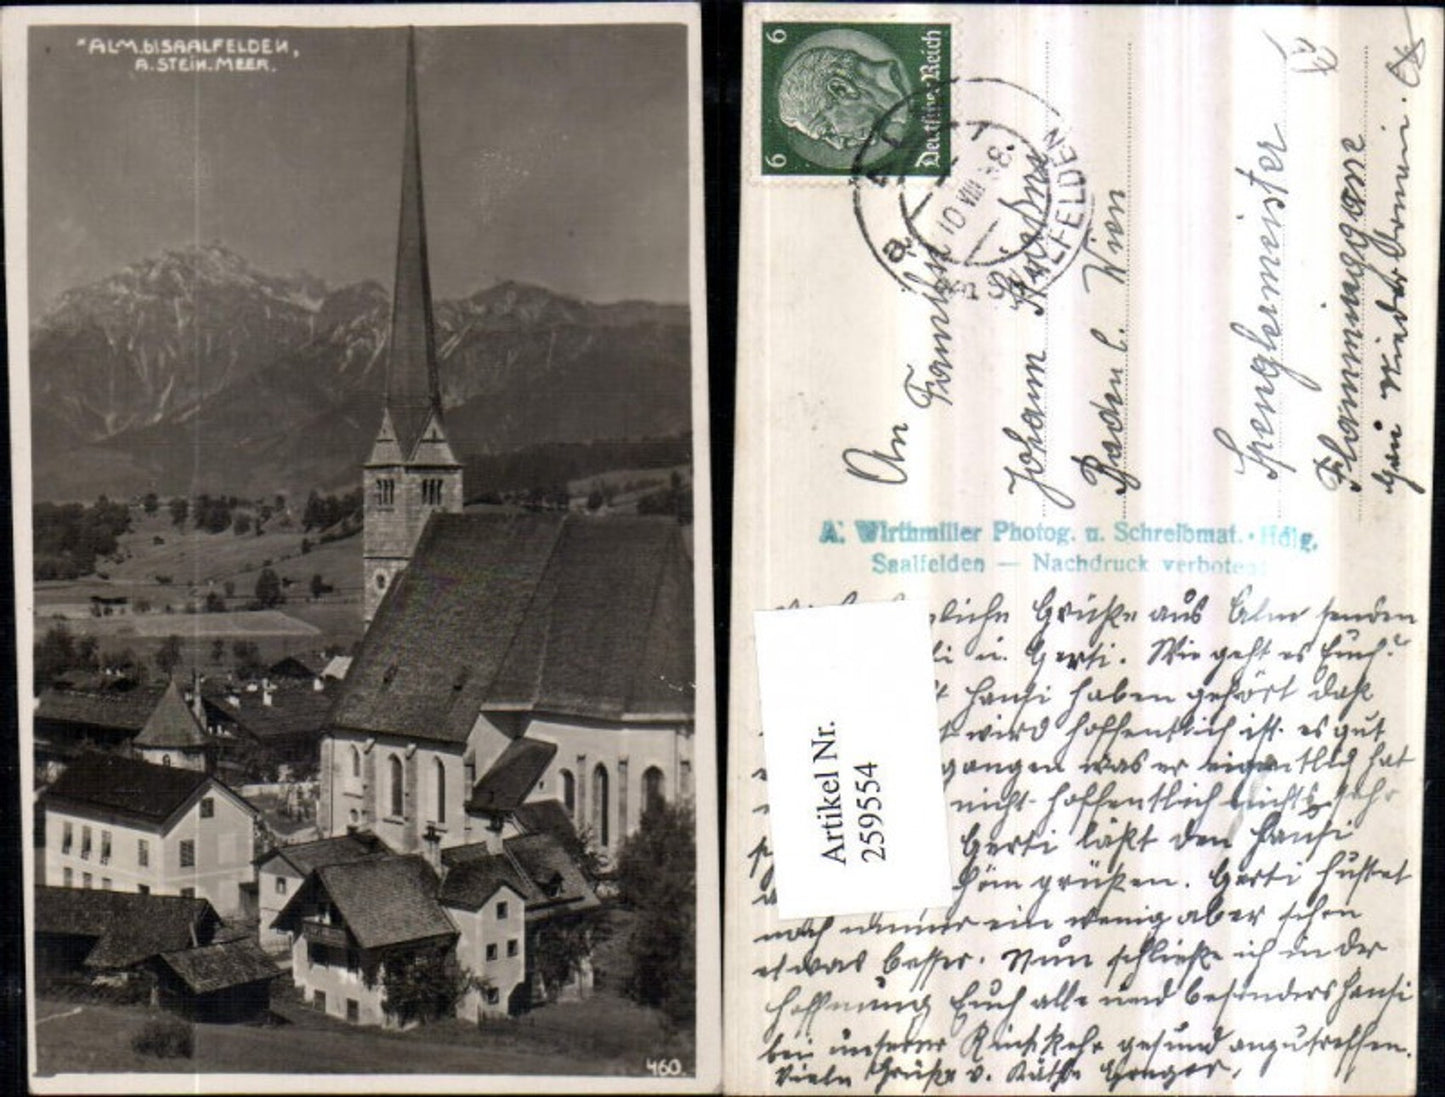 "ALM.b|SAALFELDEN,
A. STEIN. MEER.
460
6
6
Deutsches Reich
ALM
SAALFELDEN
10 VIII 38
An
Familie
Johann
Baden b. Wien
Spenglermeister
A. Wirthmiller Photog. u. Schreibmat.-Hdlg.
Saalfelden — Nachdruck verboten
Artikel Nr.
259554
Grüße aus Alm senden
u. Gerti. Wie geht es Euch?
Hansi haben gehört daß
wird hoffentlich ist es gut
gangen was er eigentlich hat
nicht hoffentlich nichts
Gerti läßt den Hansi
grüßen. Gerti hustet
noch immer ein wenig aber schon
etwas besser. Nun schließe ich in der
Hoffnung Euch alle und besonders Hansi
bei unserer Rückkehr gesund anzutreffen.
Viele Grüße v. Käthe